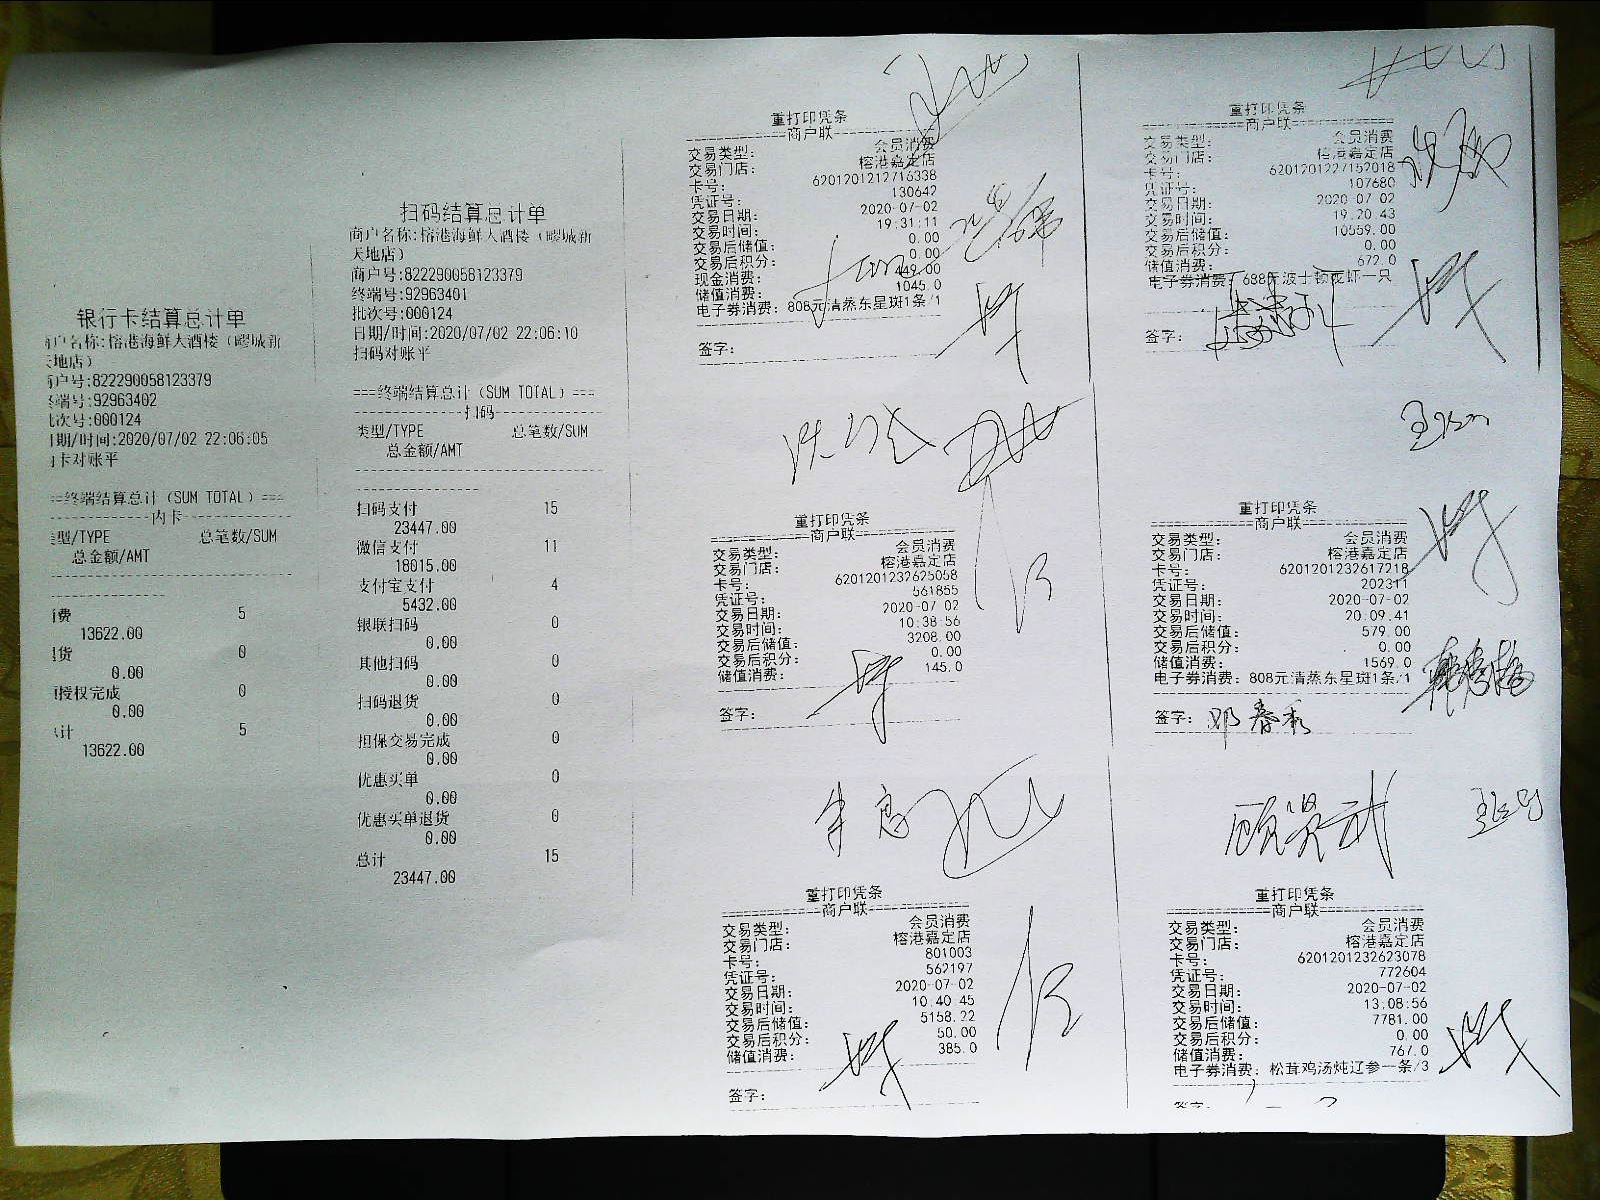 银行卡结算总计单
户名称:榕港海鲜大酒楼（疁城新
天地店）
商户号:822290058123379
终端号:92963402
批次号:000124
日期/时间:2020/07/02 22:06:05
内卡对账平
==终端结算总计（SUM TOTAL）===
内卡
类型/TYPE 总笔数/SUM
总金额/AMT
消费 5
13622.00
退货 0
0.00
预授权完成 0
0.00
总计 5
13622.00
扫码结算总计单
商户名称:榕港海鲜大酒楼（疁城新
天地店）
商户号:822290058123379
终端号:92963401
批次号:000124
日期/时间:2020/07/02 22:06:10
扫码对账平
===终端结算总计（SUM TOTAL）===
扫码
类型/TYPE 总笔数/SUM
总金额/AMT
扫码支付 15
23447.00
微信支付 11
18015.00
支付宝支付 4
5432.00
银联扫码 0
0.00
其他扫码 0
0.00
扫码退货 0
0.00
担保交易完成 0
0.00
优惠买单 0
0.00
优惠买单退货 0
0.00
总计 15
23447.00
重打印凭条
商户联
交易类型: 会员消费
交易门店: 榕港嘉定店
卡号: 6201201212716338
凭证号: 130642
交易日期: 2020-07-02
交易时间: 19:31:11
交易后储值: 0.00
交易后积分: 0.00
现金消费: 449.00
储值消费: 1045.0
电子券消费: 808元清蒸东星斑1条/1
签字:
重打印凭条
商户联
交易类型: 会员消费
交易门店: 榕港嘉定店
卡号: 6201201232625058
凭证号: 561855
交易日期: 2020-07-02
交易时间: 10:38:56
交易后储值: 3208.00
交易后积分: 0.00
储值消费: 145.0
签字:
重打印凭条
商户联
交易类型: 会员消费
交易门店: 榕港嘉定店
卡号: 801003
凭证号: 562197
交易日期: 2020-07-02
交易时间: 10:40:45
交易后储值: 5158.22
交易后积分: 50.00
储值消费: 385.0
签字:
重打印凭条
商户联
交易类型: 会员消费
交易门店: 榕港嘉定店
卡号: 6201201227152018
凭证号: 107680
交易日期: 2020-07-02
交易时间: 19:20:43
交易后储值: 10559.00
交易后积分: 0.00
储值消费: 672.0
电子券消费: 688元波士顿龙虾一只
签字:
重打印凭条
商户联
交易类型: 会员消费
交易门店: 榕港嘉定店
卡号: 6201201232617218
凭证号: 202311
交易日期: 2020-07-02
交易时间: 20:09:41
交易后储值: 579.00
交易后积分: 0.00
储值消费: 1569.0
电子券消费: 808元清蒸东星斑1条/1
签字: 邓春秀
顾贤斌
重打印凭条
商户联
交易类型: 会员消费
交易门店: 榕港嘉定店
卡号: 6201201232623078
凭证号: 772604
交易日期: 2020-07-02
交易时间: 13:08:56
交易后储值: 7781.00
交易后积分: 0.00
储值消费: 767.0
电子券消费: 松茸鸡汤炖辽参一条/3
签字: